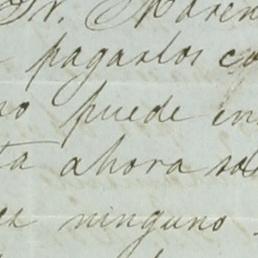 Sr. Moren
pagarlos co
no puede en
ta ahora so
ninguno